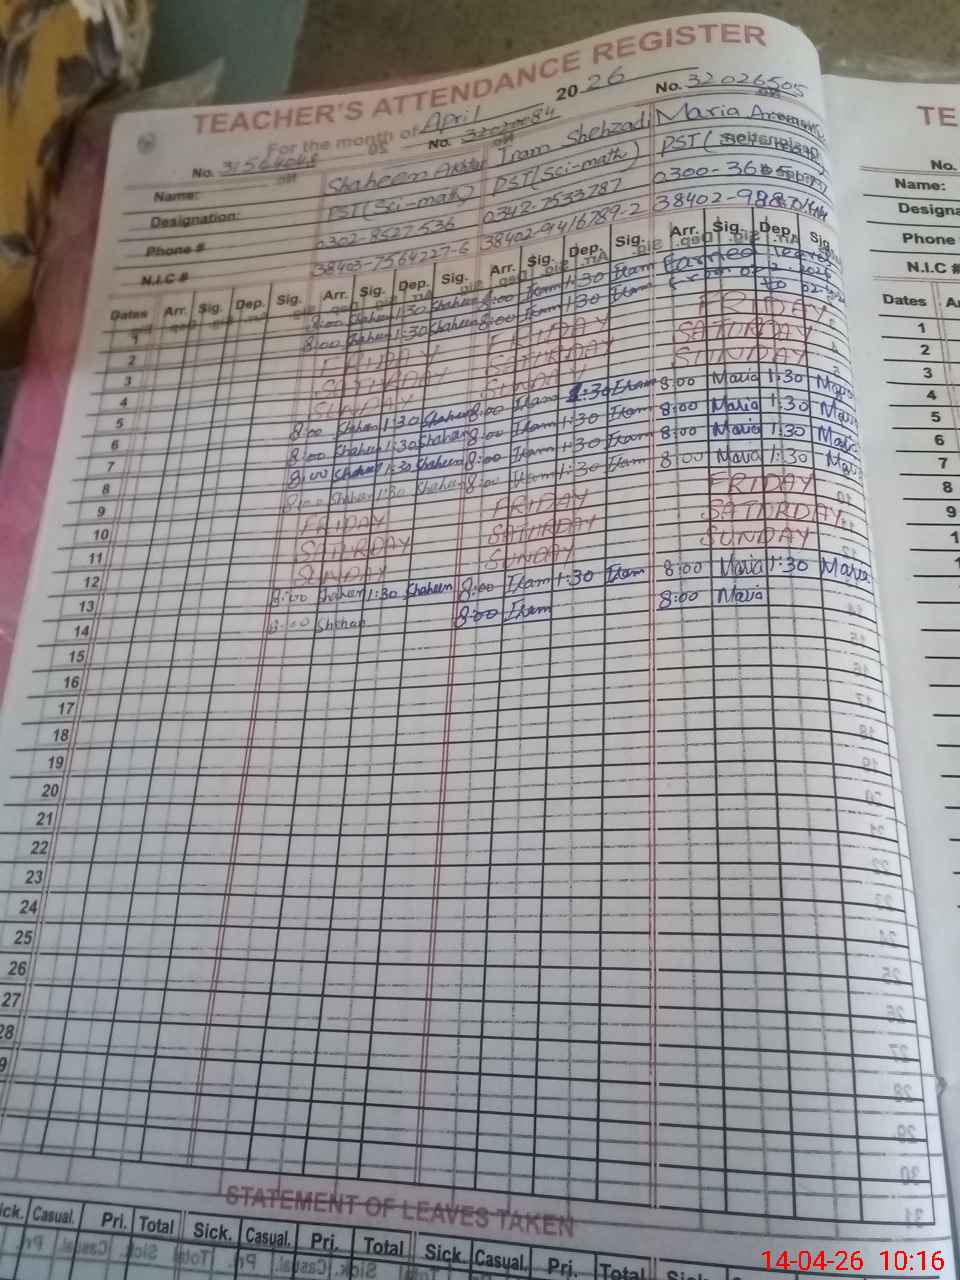 TEACHER'S ATTENDANCE REGISTER
For the month of April 2026
No. No. 32020084 No. 32026505
Name: Shaheen Akhtar Iram Shehzadi Maria
Designation: PST (Sci-math) PST (Sci-math) PST (
Phone # 0302-8527536 0342-7533787 0300-36
N.I.C # 38403-7564227-6 38402-9416789-2 38402-98
Dates Arr. Sig. Dep. Sig. Arr. Sig. Dep. Sig. Arr. Sig. Dep. Sig. Arr. Sig. Dep. Sig.
1 8:00 Shaheen 1:30 Shaheen 8:00 Iram 1:30 Iram Earned leave
2 8:00 Shaheen 1:30 Shaheen 8:00 Iram 1:30 Iram
3 FRIDAY FRIDAY FRIDAY
4 SATURDAY SATURDAY SATURDAY
5 SUNDAY SUNDAY SUNDAY
6 8:00 Shaheen 1:30 Shaheen 8:00 Iram 1:30 Iram 8:00 Maria 1:30 Maria
7 8:00 Shaheen 1:30 Shaheen 8:00 Iram 1:30 Iram 8:00 Maria 1:30 Maria
8 8:00 Shaheen 1:30 Shaheen 8:00 Iram 1:30 Iram 8:00 Maria 1:30 Maria
9 8:00 Shaheen 1:30 Shaheen 8:00 Iram 1:30 Iram 8:00 Maria 1:30 Maria
10 FRIDAY FRIDAY FRIDAY
11 SATURDAY SATURDAY SATURDAY
12 SUNDAY SUNDAY SUNDAY
13 8:00 Shaheen 1:30 Shaheen 8:00 Iram 1:30 Iram 8:00 Maria 1:30 Maria
14 8:00 Shaheen 8:00 Iram 8:00 Maria
15
16
17
18
19
20
21
22
23
24
25
26
27
28
STATEMENT OF LEAVES TAKEN
Casual. Pri. Total Sick. Casual. Pri. Total Sick. Casual. Pri. Total Sick.
TE
No.
Name:
Phone
N.I.C #
Dates
1
2
3
4
5
6
7
8
9
14-04-26 10:16